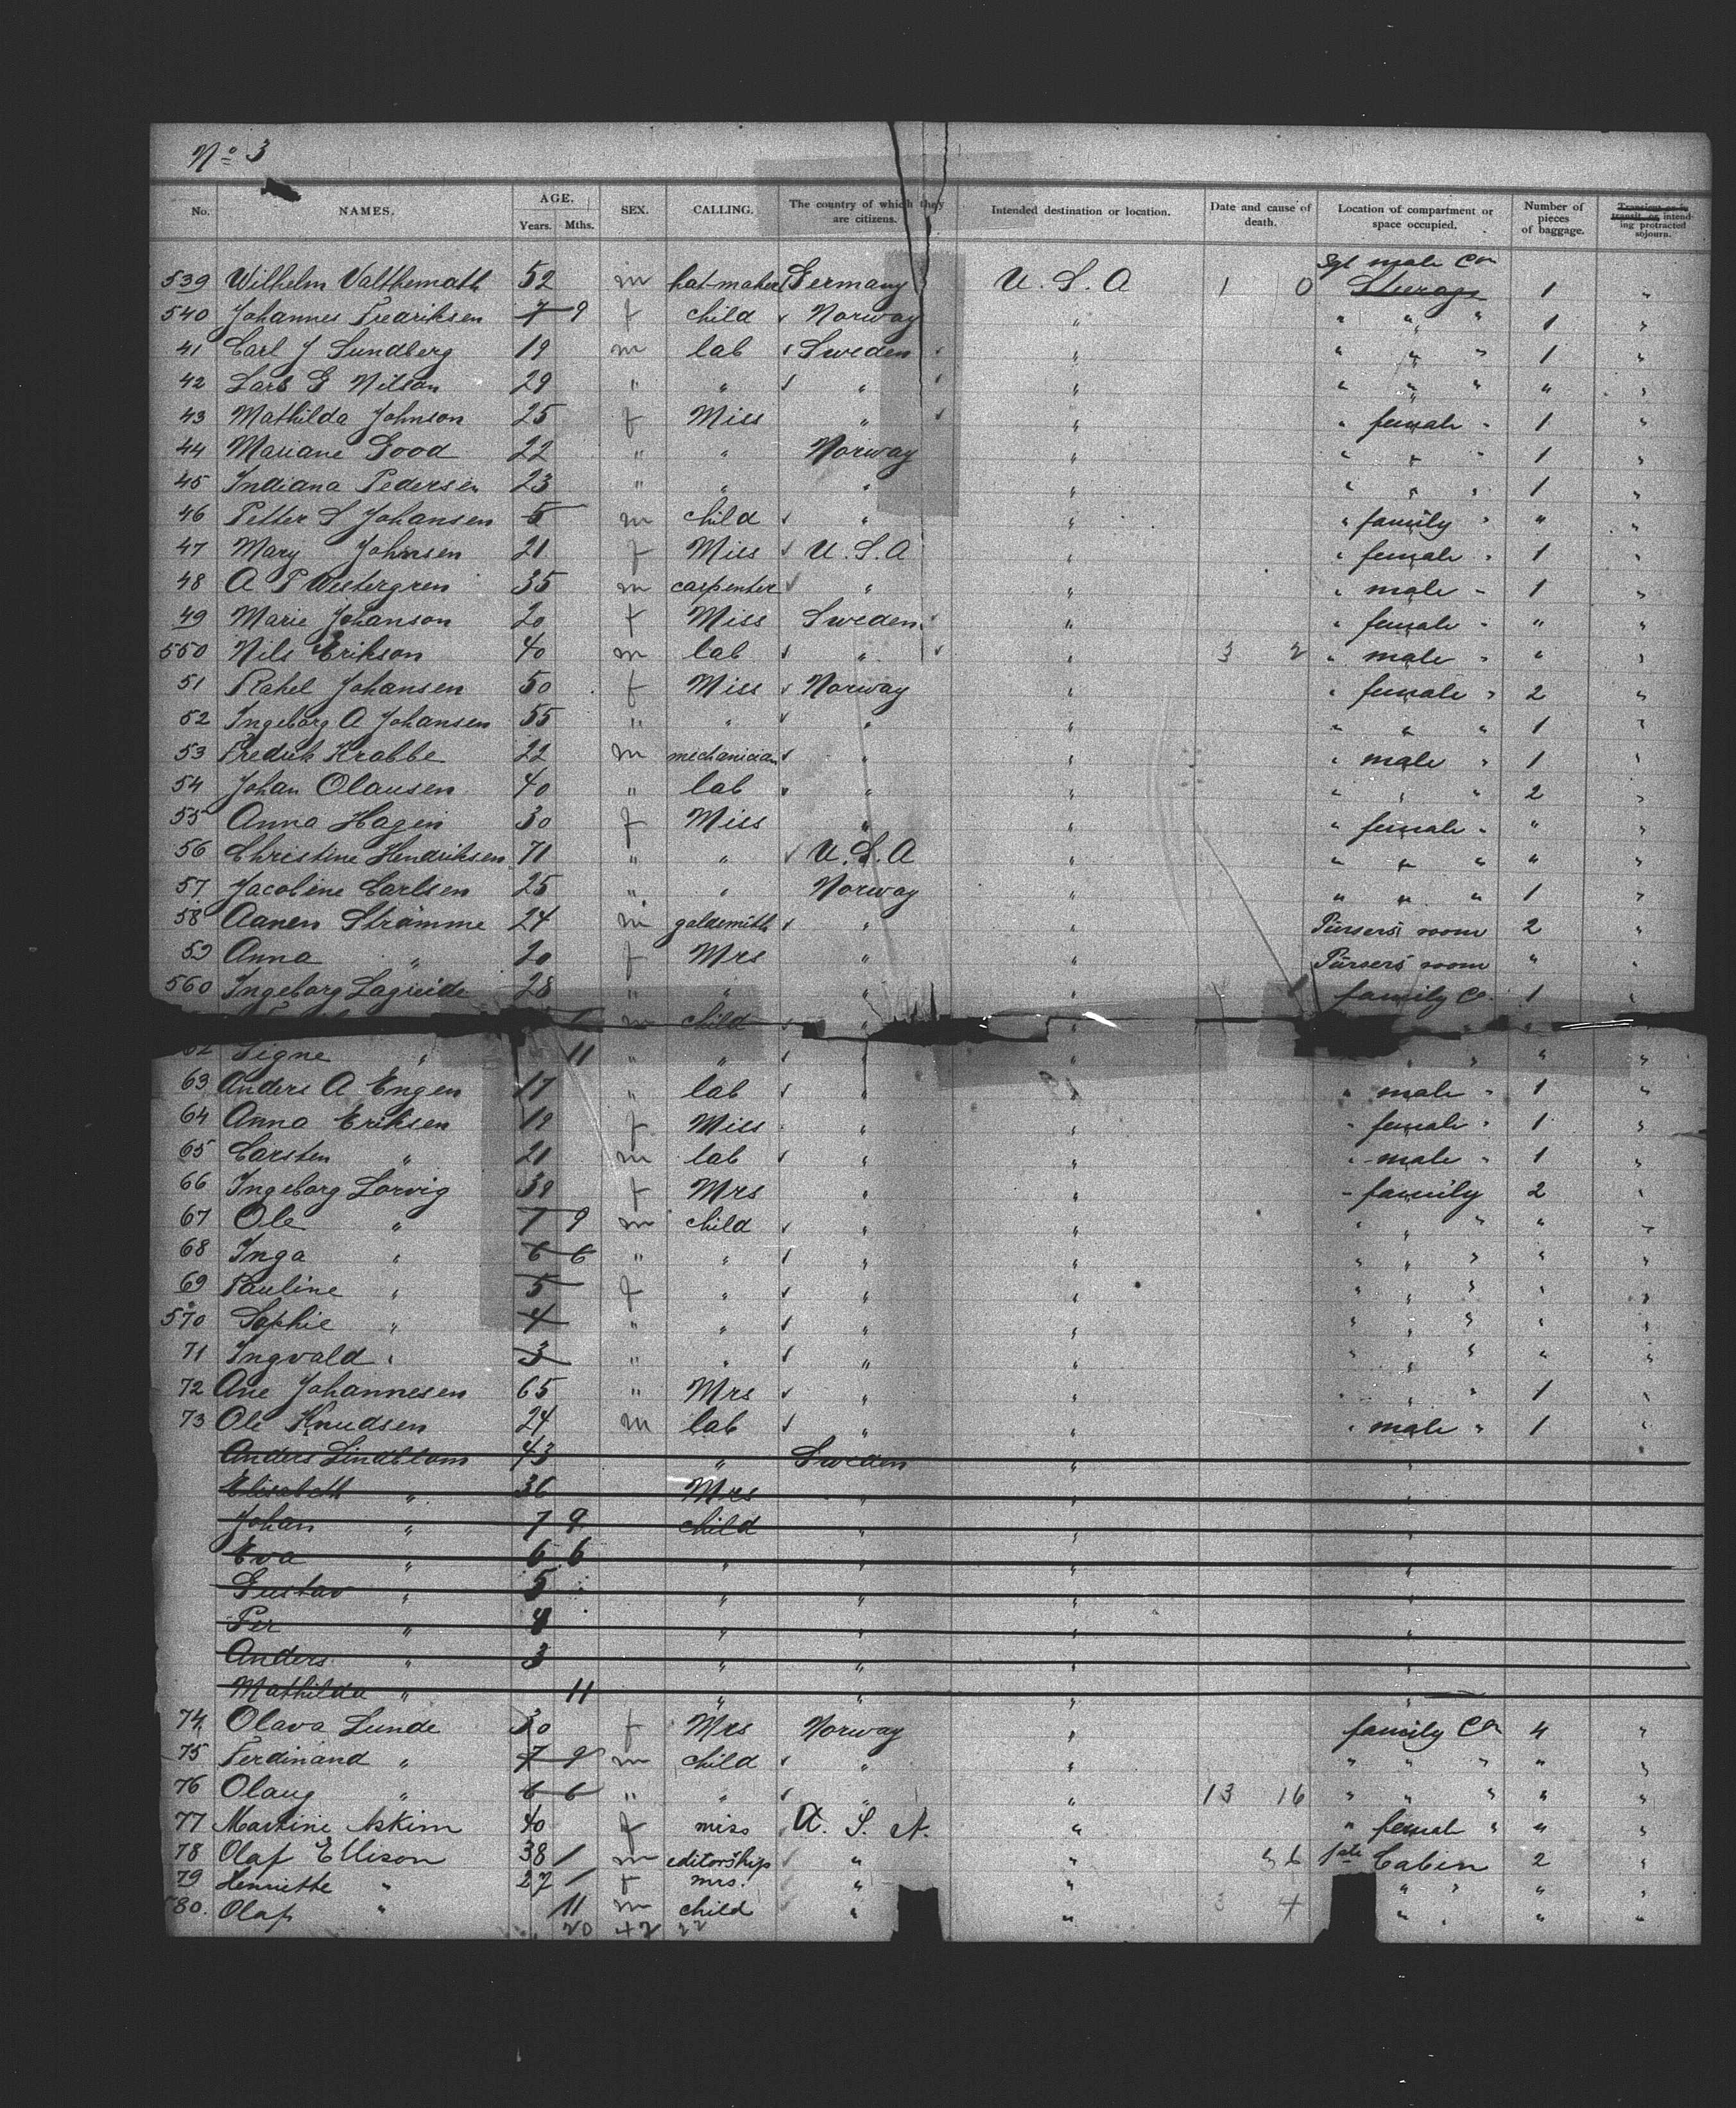 No 3
No. NAMES. AGE. Years. Mths. SEX. CALLING. The country of which they are citizens. Intended destination or location. Date and cause of death. Location of compartment or space occupied. Number of pieces of baggage. Transient or in transit, or intending protracted sojourn.
Sgl male Con
539 Wilhelm Valthemath 52 m hat-maker Germany U. S. A 1 0 Steerage 1 "
540 Johannes Fredriksen 7 9 f child Norway " " " " 1 "
41 Carl J Sundberg 19 m lab Sweden " " " " 1 "
42 Lars G Nilson 29 " " " " " " " " "
43 Mathilda Johnson 25 f Miss " " " female " 1 "
44 Mariane Good 22 " " Norway " " " " 1 "
45 Indiana Pedersen 23 " " " " " " " 1 "
46 Petter S Johansen 5 m child " " " family " " "
47 Mary Johnsen 21 f Miss U. S. A " " female " 1 "
48 A P Westergren 35 m carpenter " " " male " 1 "
49 Marie Johanson 20 f Miss Sweden " " female " " "
550 Nils Erikson 40 m lab " " 3 2 " male " " "
51 Rahel Johansen 50 f Miss Norway " " female " 2 "
52 Ingeborg A Johansen 55 " " " " " " " 1 "
53 Fredrik Krabbe 22 m mechanician " " " male " 1 "
54 Johan Olausen 40 " lab " " " " " 2 "
55 Anna Hagen 30 f Miss " " " female " " "
56 Christine Hendriksen 71 " " U. S. A " " " " " "
57 Jacobine Carlsen 25 " " Norway " " " " 1 "
58 Aanen Strømme 24 m goldsmith " " Pursers room 2 "
59 Anna " 20 f Mrs " " Pursers room " "
560 Ingeborg Lagreide 28 " " " " family Co. 1 "
m child " "
62 Signe " 11 " " " " " " "
63 Anders A Engen 17 " lab " " " male " 1 "
64 Anna Eriksen 19 f Miss " " " female " 1 "
65 Carsten " 21 m lab " " " male " 1 "
66 Ingeborg Lorvig 39 f Mrs " " " family 2 "
67 Ole " 7 9 m child " " " " " " "
68 Inga " 6 6 " " " " " " " " "
69 Pauline " 5 f " " " " " " "
570 Sophie " 4 " " " " " " " " "
71 Ingvald " 3 " " " " " " " " "
72 Ane Johannesen 65 " Mrs " " " " " 1 "
73 Ole Knudsen 24 m lab " " " male " 1 "
Anders Lindblom 43 " Sweden " "
Elisabeth " 36 Mrs " " "
Johan " 7 9 child " " "
Eva " 6 6 " " " "
Gustav " 5 " " " "
Per " 4 " " " "
Anders " 3 " " " "
Mathilda " 11 " " " "
74 Olava Lunde 30 f Mrs Norway " family Co 4 "
75 Ferdinand " 7 9 m child " " " " " " "
76 Olaug " 6 6 " " " " 13 16 " " " " "
77 Martine Askim 40 f miss U. S. A. " " female " " "
78 Olaf Ellison 38 m editorship " " Cabin 2 "
79 Henriette " 27 f mrs. " " " " " "
580. Olaf " 11 m child " " 3 4 " " " "
20 42 22